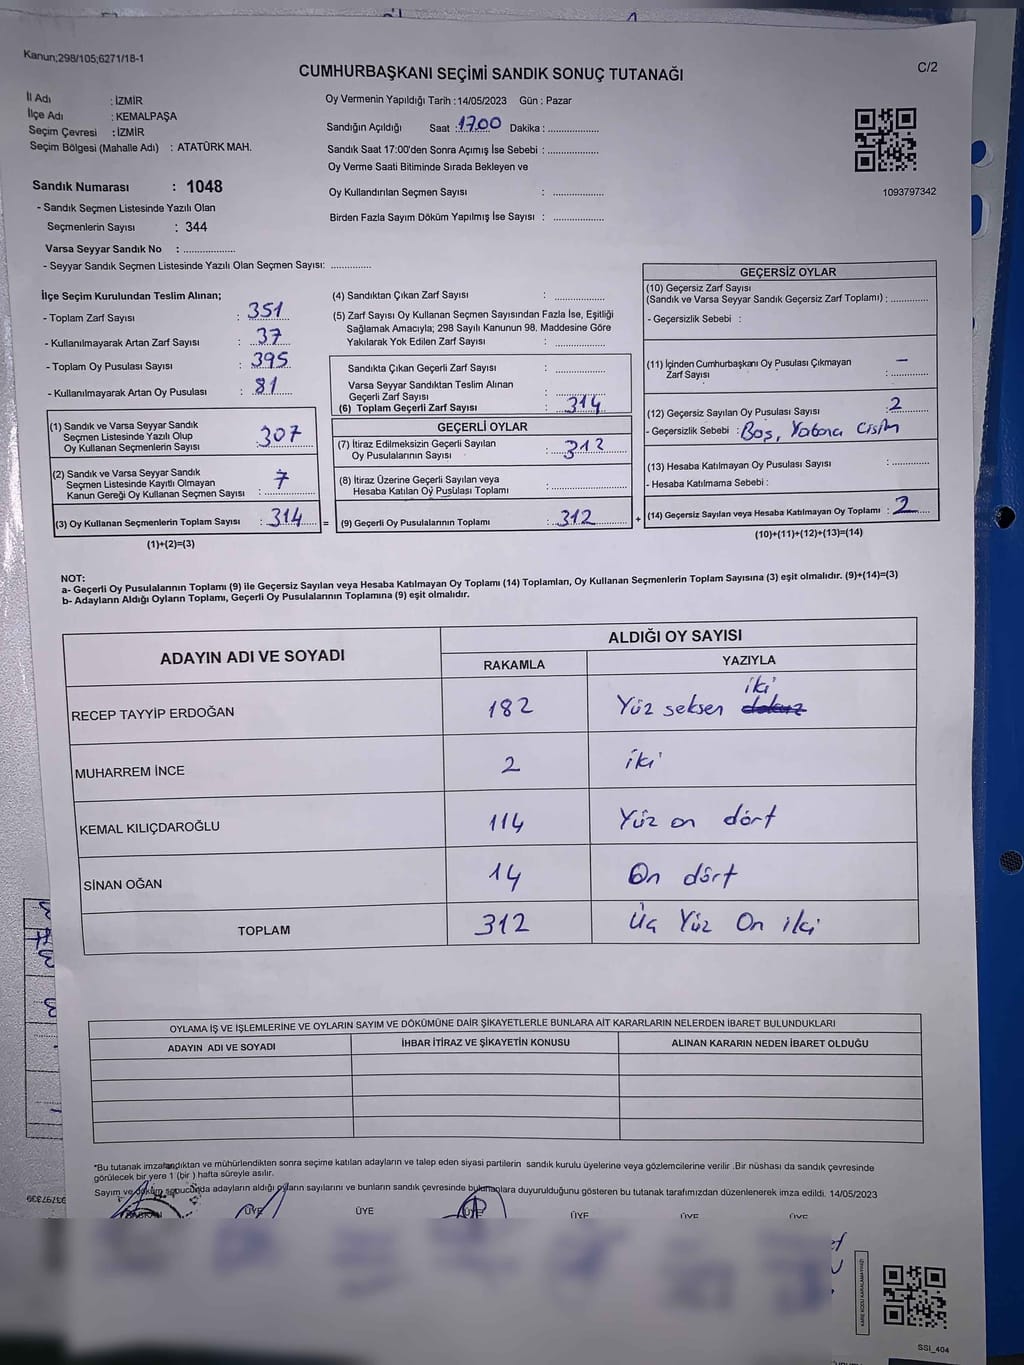 Kanun;298/105;6271/18-1
CUMHURBAŞKANI SEÇİMİ SANDIK SONUÇ TUTANAĞI
C/2
İl Adı : İZMİR
İlçe Adı : KEMALPAŞA
Seçim Çevresi : İZMİR
Seçim Bölgesi (Mahalle Adı) : ATATÜRK MAH.
Sandık Numarası : 1048
- Sandık Seçmen Listesinde Yazılı Olan
Seçmenlerin Sayısı : 344
Varsa Seyyar Sandık No : ..................
- Seyyar Sandık Seçmen Listesinde Yazılı Olan Seçmen Sayısı: ..............
Oy Vermenin Yapıldığı Tarih : 14/05/2023 Gün : Pazar
Sandığın Açıldığı Saat : 17.00 Dakika : ..................
Sandık Saat 17:00'den Sonra Açımış İse Sebebi : ..................
Oy Verme Saati Bitiminde Sırada Bekleyen ve
Oy Kullandırılan Seçmen Sayısı : ..................
Birden Fazla Sayım Döküm Yapılmış İse Sayısı : ..................
1093797342
İlçe Seçim Kurulundan Teslim Alınan;
- Toplam Zarf Sayısı : 351
- Kullanılmayarak Artan Zarf Sayısı : 37
- Toplam Oy Pusulası Sayısı : 395
- Kullanılmayarak Artan Oy Pusulası : 81
(1) Sandık ve Varsa Seyyar Sandık
Seçmen Listesinde Yazılı Olup
Oy Kullanan Seçmenlerin Sayısı : 307
(2) Sandık ve Varsa Seyyar Sandık
Seçmen Listesinde Kayıtlı Olmayan
Kanun Gereği Oy Kullanan Seçmen Sayısı : 7
(3) Oy Kullanan Seçmenlerin Toplam Sayısı : 314 =
(1)+(2)=(3)
(4) Sandıktan Çıkan Zarf Sayısı : ..................
(5) Zarf Sayısı Oy Kullanan Seçmen Sayısından Fazla İse, Eşitliği
Sağlamak Amacıyla; 298 Sayılı Kanunun 98. Maddesine Göre
Yakılarak Yok Edilen Zarf Sayısı : ..................
Sandıkta Çıkan Geçerli Zarf Sayısı : ..................
Varsa Seyyar Sandıktan Teslim Alınan
Geçerli Zarf Sayısı : ..................
(6) Toplam Geçerli Zarf Sayısı : 314
GEÇERLİ OYLAR
(7) İtiraz Edilmeksizin Geçerli Sayılan
Oy Pusulalarının Sayısı : 312
(8) İtiraz Üzerine Geçerli Sayılan veya
Hesaba Katılan Oy Pusulası Toplamı : ..................
(9) Geçerli Oy Pusulalarının Toplamı : 312 +
GEÇERSİZ OYLAR
(10) Geçersiz Zarf Sayısı
(Sandık ve Varsa Seyyar Sandık Geçersiz Zarf Toplamı) : .............
- Geçersizlik Sebebi :
(11) İçinden Cumhurbaşkanı Oy Pusulası Çıkmayan
Zarf Sayısı : –
(12) Geçersiz Sayılan Oy Pusulası Sayısı : 2
- Geçersizlik Sebebi : Boş, Yabancı Cisim
(13) Hesaba Katılmayan Oy Pusulası Sayısı : .............
- Hesaba Katılmama Sebebi :
(14) Geçersiz Sayılan veya Hesaba Katılmayan Oy Toplamı : 2
(10)+(11)+(12)+(13)=(14)
NOT:
a- Geçerli Oy Pusulalarının Toplamı (9) ile Geçersiz Sayılan veya Hesaba Katılmayan Oy Toplamı (14) Toplamları, Oy Kullanan Seçmenlerin Toplam Sayısına (3) eşit olmalıdır. (9)+(14)=(3)
b- Adayların Aldığı Oyların Toplamı, Geçerli Oy Pusulalarının Toplamına (9) eşit olmalıdır.
ADAYIN ADI VE SOYADI ALDIĞI OY SAYISI
RAKAMLA YAZIYLA
RECEP TAYYİP ERDOĞAN 182 Yüz seksen dokuz iki
MUHARREM İNCE 2 iki
KEMAL KILIÇDAROĞLU 114 Yüz on dört
SİNAN OĞAN 14 On dört
TOPLAM 312 Üç Yüz On iki
OYLAMA İŞ VE İŞLEMLERİNE VE OYLARIN SAYIM VE DÖKÜMÜNE DAİR ŞİKAYETLERLE BUNLARA AİT KARARLARIN NELERDEN İBARET BULUNDUKLARI
ADAYIN ADI VE SOYADI İHBAR İTİRAZ VE ŞİKAYETİN KONUSU ALINAN KARARIN NEDEN İBARET OLDUĞU
*Bu tutanak imzalandıktan ve mühürlendikten sonra seçime katılan adayların ve talep eden siyasi partilerin sandık kurulu üyelerine veya gözlemcilerine verilir .Bir nüshası da sandık çevresinde
görülecek bir yere 1 (bir ) hafta süreyle asılır.
Sayım ve döküm sonucunda adayların aldığı oyların sayılarını ve bunların sandık çevresinde bulunanlara duyurulduğunu gösteren bu tutanak tarafımızdan düzenlenerek imza edildi. 14/05/2023
BAŞKAN ÜYE ÜYE ÜYE ÜYE ÜYE ÜYE
SSI_404